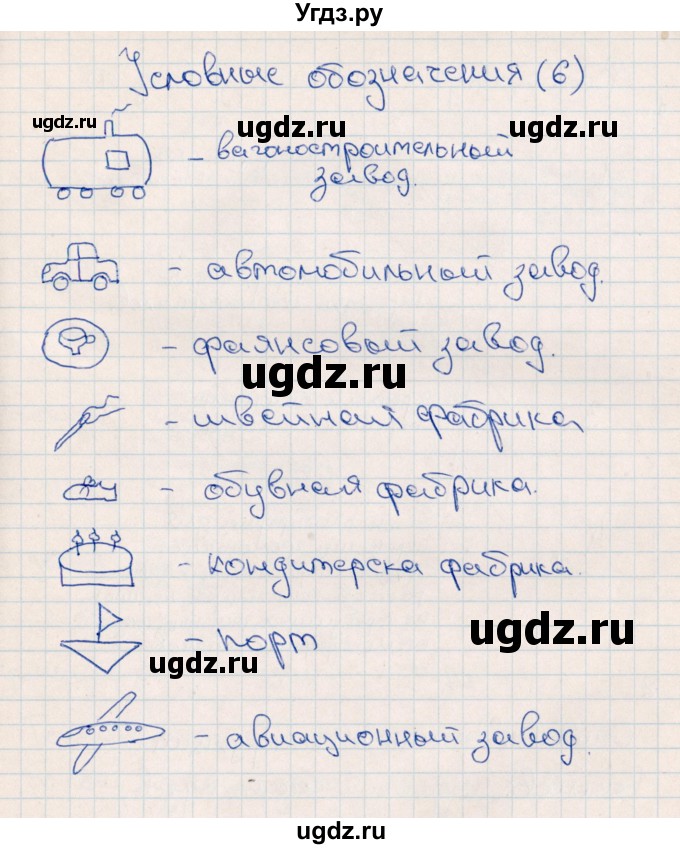 Угдз.ру
Условные обозначения (6)
ugdz.ru
ugdz.ru
ugdz.ru
- вагоностроительный
завод.
- автомобильный завод.
- фаянсовый завод.
ugdz.ru
- швейная фабрика
- обувная фабрика.
- кондитерска фабрика.
ugdz.ru
- порт
ugdz.ru
- авиационный завод.
ugdz.ru